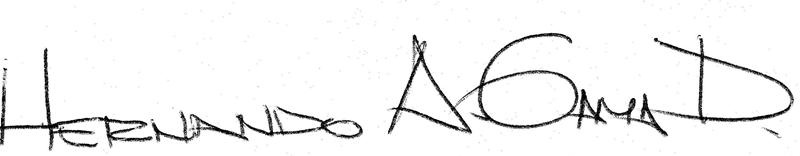 HERNANDO A. GAMA D.